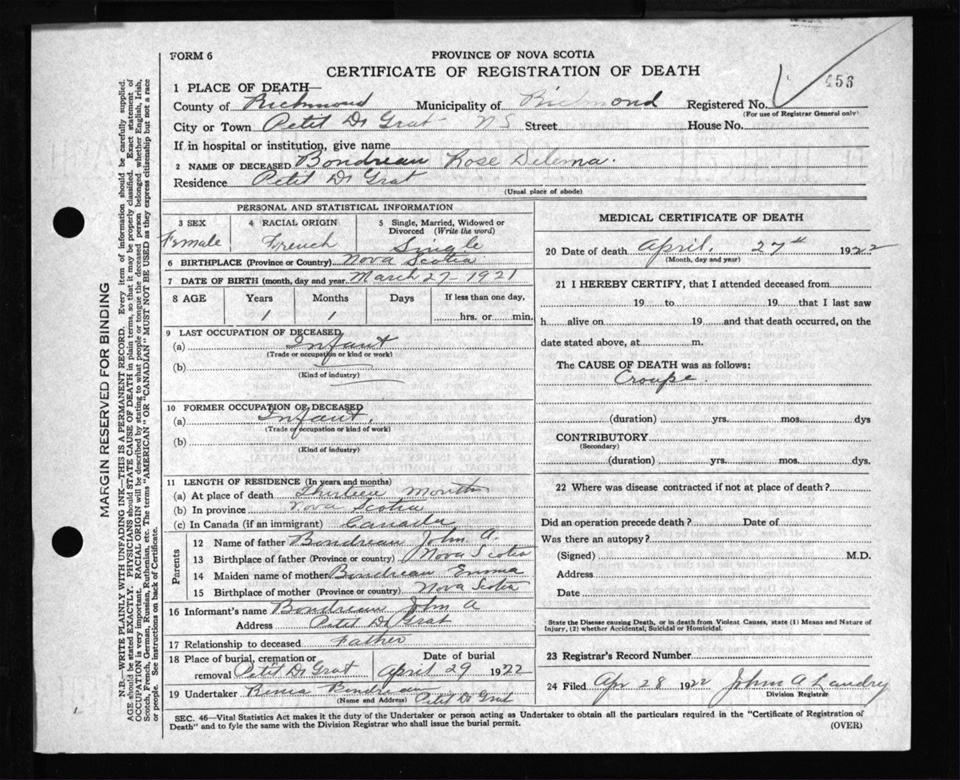 FORM 6
PROVINCE OF NOVA SCOTIA
CERTIFICATE OF REGISTRATION OF DEATH
453
1 PLACE OF DEATH—
County of Richmond Municipality of Richmond Registered No.
(For use of Registrar General only)
City or Town Petit De Grat NS Street House No.
If in hospital or institution, give name
2 NAME OF DECEASED Boudreau Rose Delema.
Residence Petit De Grat
(Usual place of abode)
PERSONAL AND STATISTICAL INFORMATION
3 SEX Female
4 RACIAL ORIGIN French
5 Single, Married, Widowed or Divorced (Write the word) Single
6 BIRTHPLACE (Province or Country) Nova Scotia
7 DATE OF BIRTH (month, day and year) March 27 - 1921
8 AGE Years Months Days If less than one day,
1 1 hrs. or min.
9 LAST OCCUPATION OF DECEASED
(a) Infant
(Trade or occupation or kind or work)
(b)
(Kind of industry)
10 FORMER OCCUPATION OF DECEASED
(a) Infant.
(Trade or occupation or kind of work)
(b)
(Kind of industry)
11 LENGTH OF RESIDENCE (In years and months)
(a) At place of death Thirteen Month
(b) In province Nova Scotia
(c) In Canada (if an immigrant) Canada
Parents
12 Name of father Boudreau John A.
13 Birthplace of father (Province or country) Nova Scotia
14 Maiden name of mother Boudreau Emma
15 Birthplace of mother (Province or country) Nova Scotia
16 Informant's name Boudreau John A
Address Petit De Grat
17 Relationship to deceased Father
18 Place of burial, cremation or removal Petit De Grat
Date of burial April 29 1922
19 Undertaker Boudreau Petit De Grat
(Name and Address)
MEDICAL CERTIFICATE OF DEATH
20 Date of death April, 27th 1922
(Month, day and year)
21 I HEREBY CERTIFY, that I attended deceased from
19 to 19 that I last saw
h alive on 19 and that death occurred, on the
date stated above, at m.
The CAUSE OF DEATH was as follows:
Croupe.
(duration) yrs. mos. dys
CONTRIBUTORY
(Secondary)
(duration) yrs. mos. dys.
22 Where was disease contracted if not at place of death?
Did an operation precede death? Date of
Was there an autopsy?
(Signed) M.D.
Address
Date
State the Disease causing Death, or in death from Violent Causes, state (1) Means and Nature of
Injury, (2) whether Accidental, Suicidal or Homicidal.
23 Registrar's Record Number
24 Filed Apr 28 1922 John A Landry
Division Registrar
SEC. 46—Vital Statistics Act makes it the duty of the Undertaker or person acting as Undertaker to obtain all the particulars required in the "Certificate of Registration of
Death" and to file the same with the Division Registrar who shall issue the burial permit.
(OVER)
MARGIN RESERVED FOR BINDING
N.B.—WRITE PLAINLY WITH UNFADING INK—THIS IS A PERMANENT RECORD. Every item of information should be carefully supplied.
AGE should be stated EXACTLY. PHYSICIANS should STATE CAUSE OF DEATH in plain terms, so that it may be properly classified. Exact statement of
OCCUPATION is very important. RACIAL ORIGIN will be described by stating to what people or tongue the deceased person belonged whether English, Irish,
Scotch, French, German, Russian, Ruthenian, etc. The terms "AMERICAN" OR "CANADIAN" MUST NOT BE USED as they express citizenship but not a race
or people. See instructions on back of Certificate.